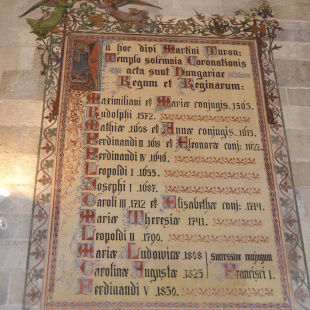 In hoc divi Martini Turon:
Templo solemnia Coronationis
acta sunt Hungariae
Regum et Reginarum:
Maximiliani et Mariae conjugis. 1563.
Rudolphi. 1572.
Mathiae 1608 et Annae conjugis. 1613.
Ferdinandi II 1618 et Eleonorae conj: 1622.
Ferdinandi IV 1646.
Leopoldi I 1655.
Josephi I 1687.
Caroli III 1712 et Elisabethae conj: 1714.
Mariae Theresiae 1741.
Leopoldi II 1790.
Mariae Ludowicae 1808 successive conjugum
Carolinae Augustae 1825 Francisci I.
Ferdinandi V 1830.